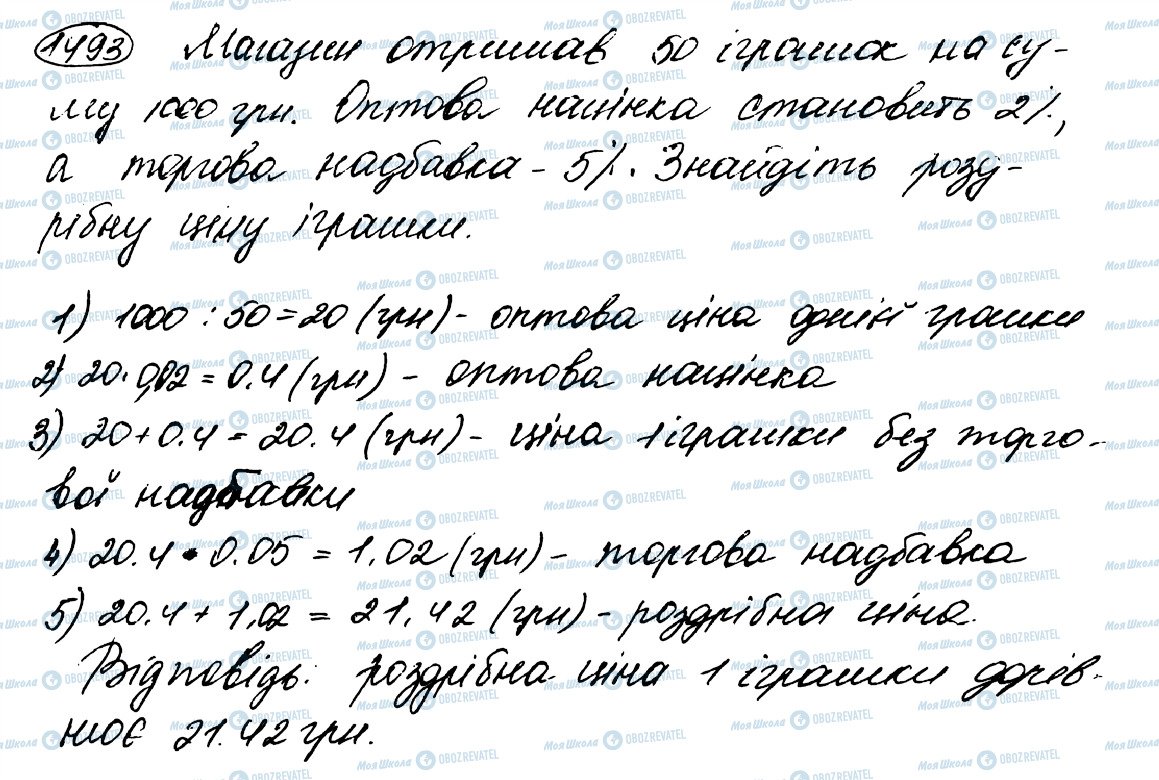 1493 Магазин отримав 50 іграшок на су-
му 1000 грн. Оптова націнка становить 2%,
а торгова надбавка - 5%. Знайдіть розд-
рібну ціну іграшки.
1) 1000 : 50 = 20 (грн) - оптова ціна однієї грашки
2) 20 · 0,02 = 0.4 (грн) - оптова націнка
3) 20 + 0.4 = 20.4 (грн) - ціна 1 іграшки без торго-
вої надбавки
4) 20.4 · 0.05 = 1.02 (грн) - торгова надбавка
5) 20.4 + 1.02 = 21.42 (грн) - роздрібна ціна.
Відповідь: роздрібна ціна 1 іграшки дорів-
нює 21.42 грн.